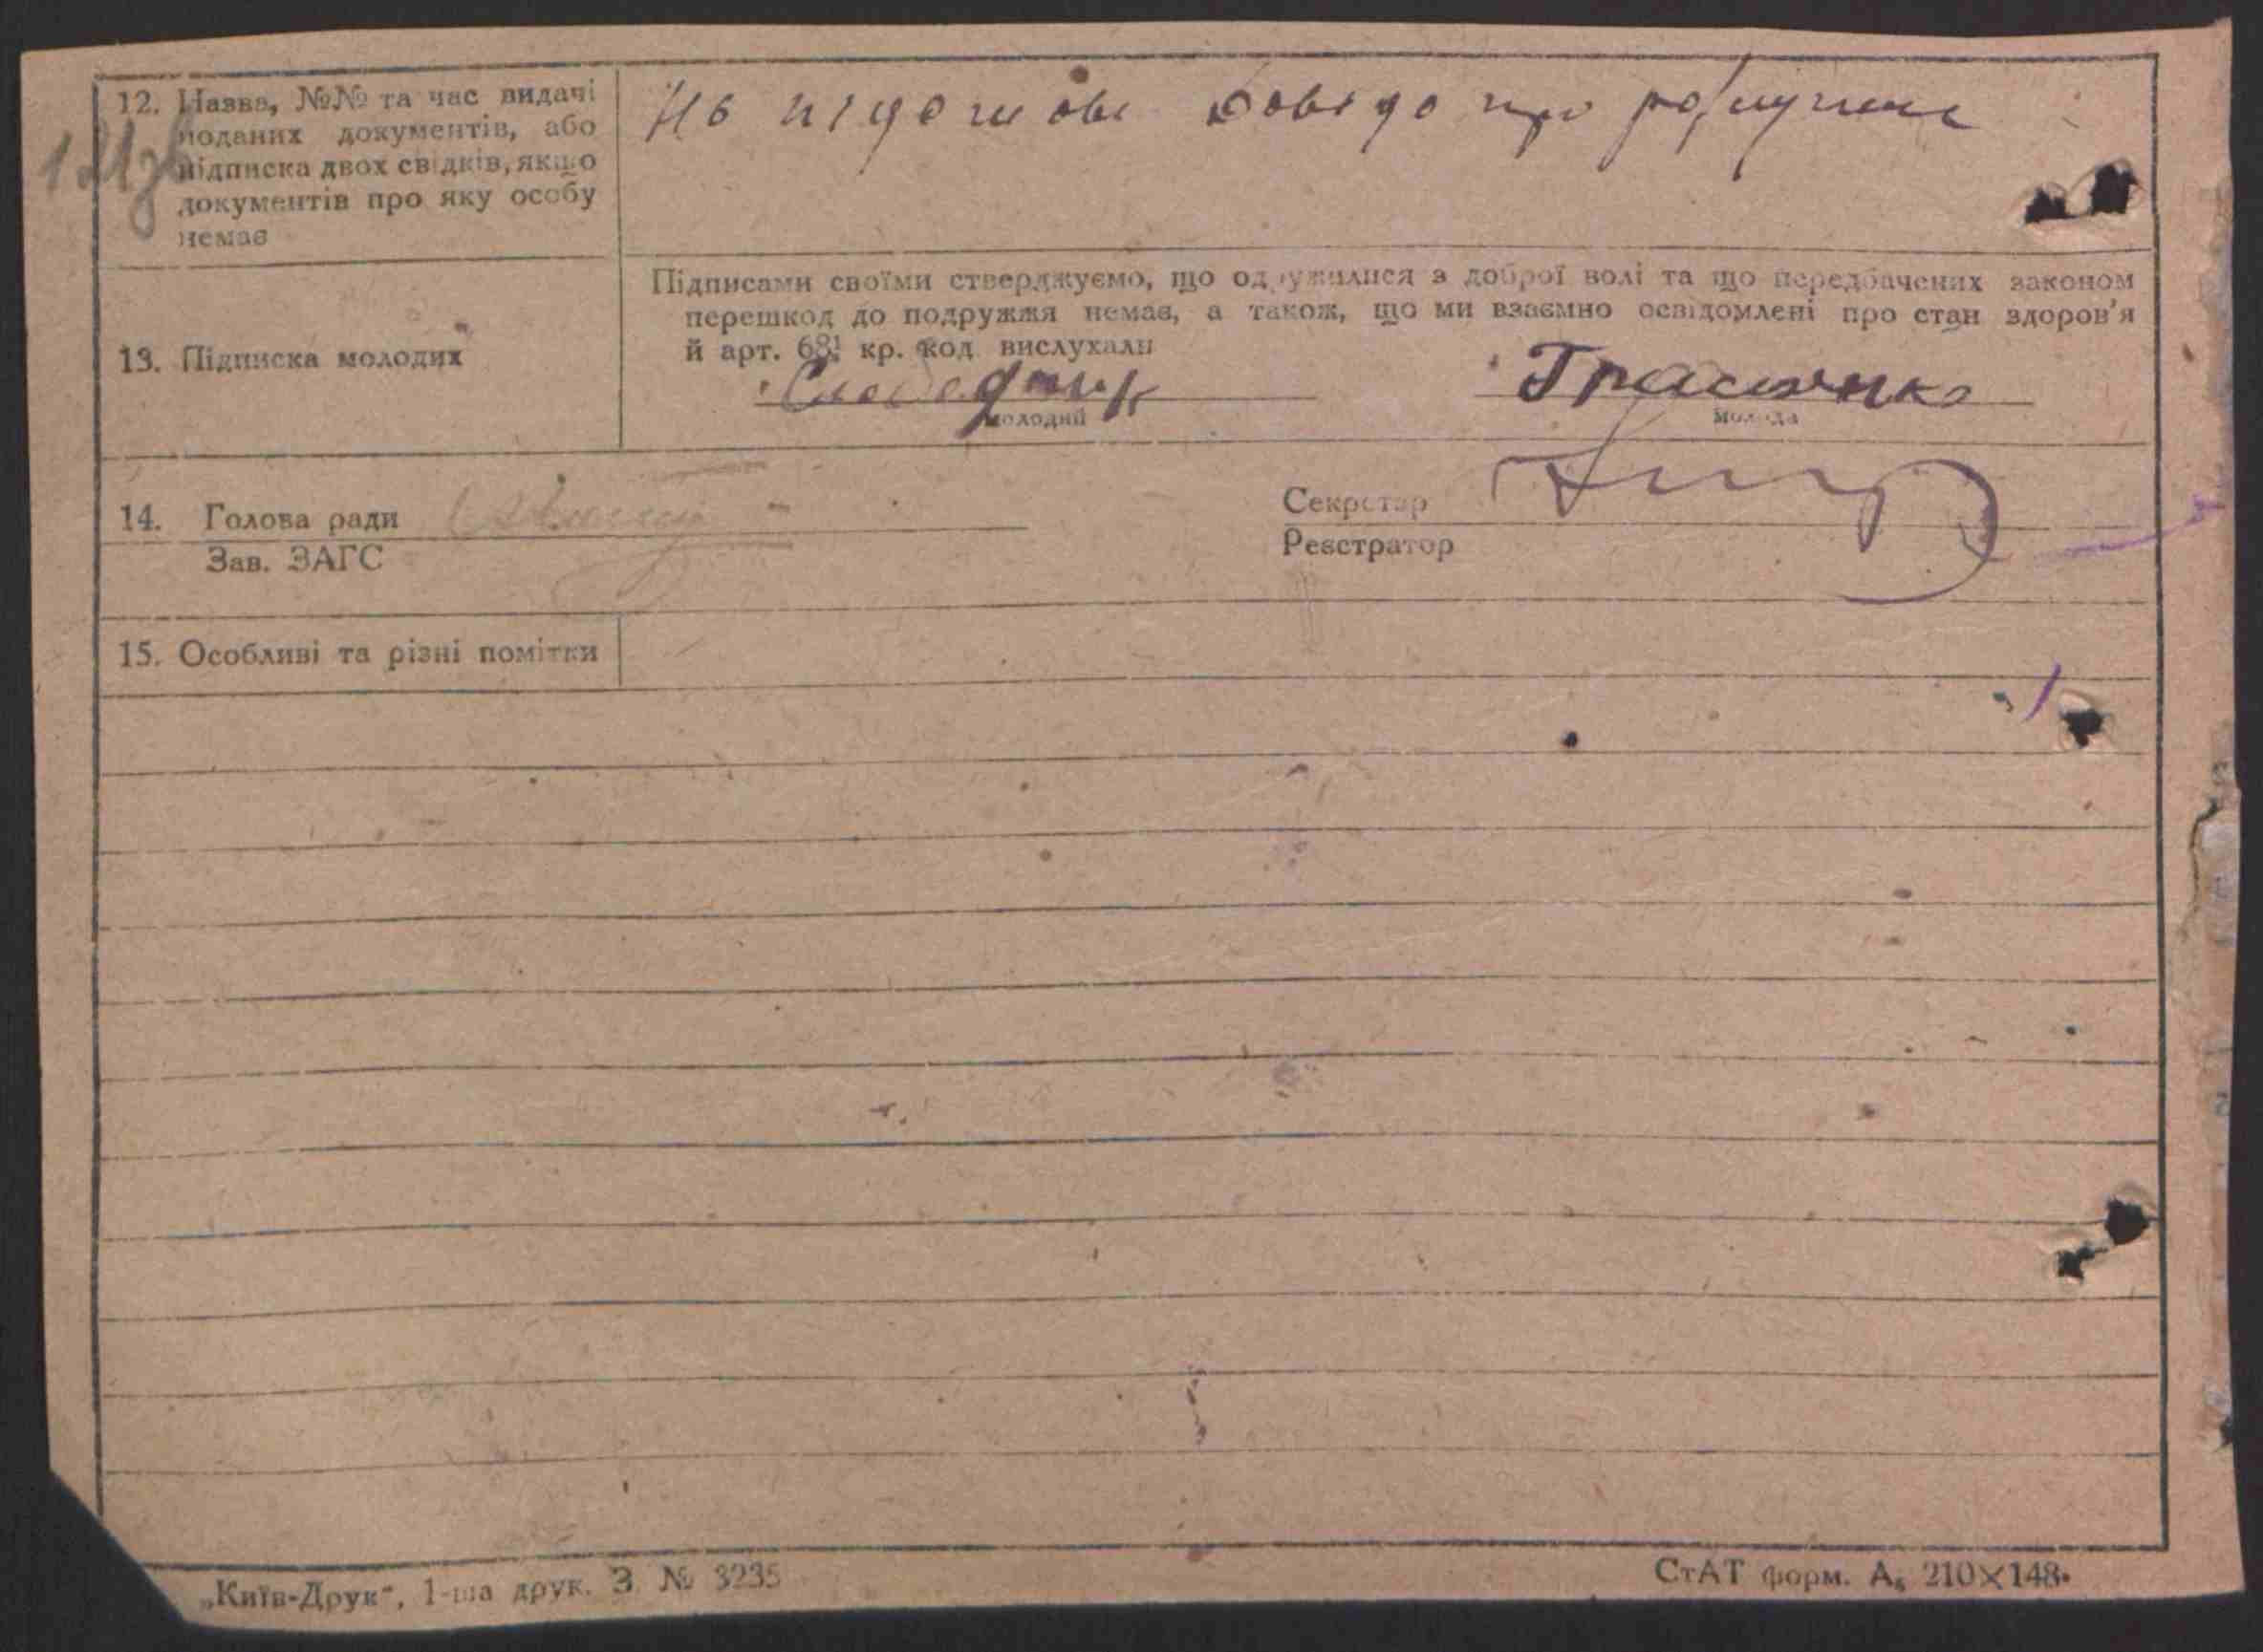 12. Назва, №№ та час видачі
поданих документів, або
підписка двох свідків, якщо
документів про яку особу
немає
На підставі довідо про
Підписами своїми стверджуємо, що одружилися з доброї волі та що передбачених законом
перешкод до подружжя немає, а також, що ми взаємно освідомлені про стан здоров'я
й арт. 68¹ кр. код вислухали
13. Підписка молодих
молодий
молода
14. Голова ради
Зав. ЗАГС
Секретар
Реєстратор
15. Особливі та різні помітки
„Київ-Друк“, 1-ша друк. З № 3235
СтАТ форм. А₅ 210×148.